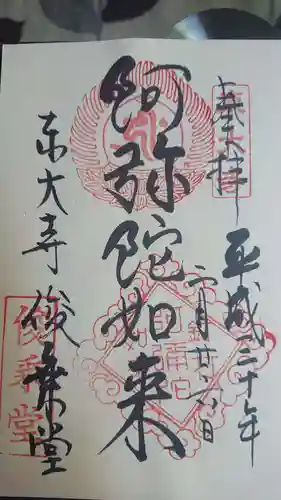 奉拝
平成二十年
二月廿六日
阿弥陀如来
東大寺
俊乗堂
俊乗堂